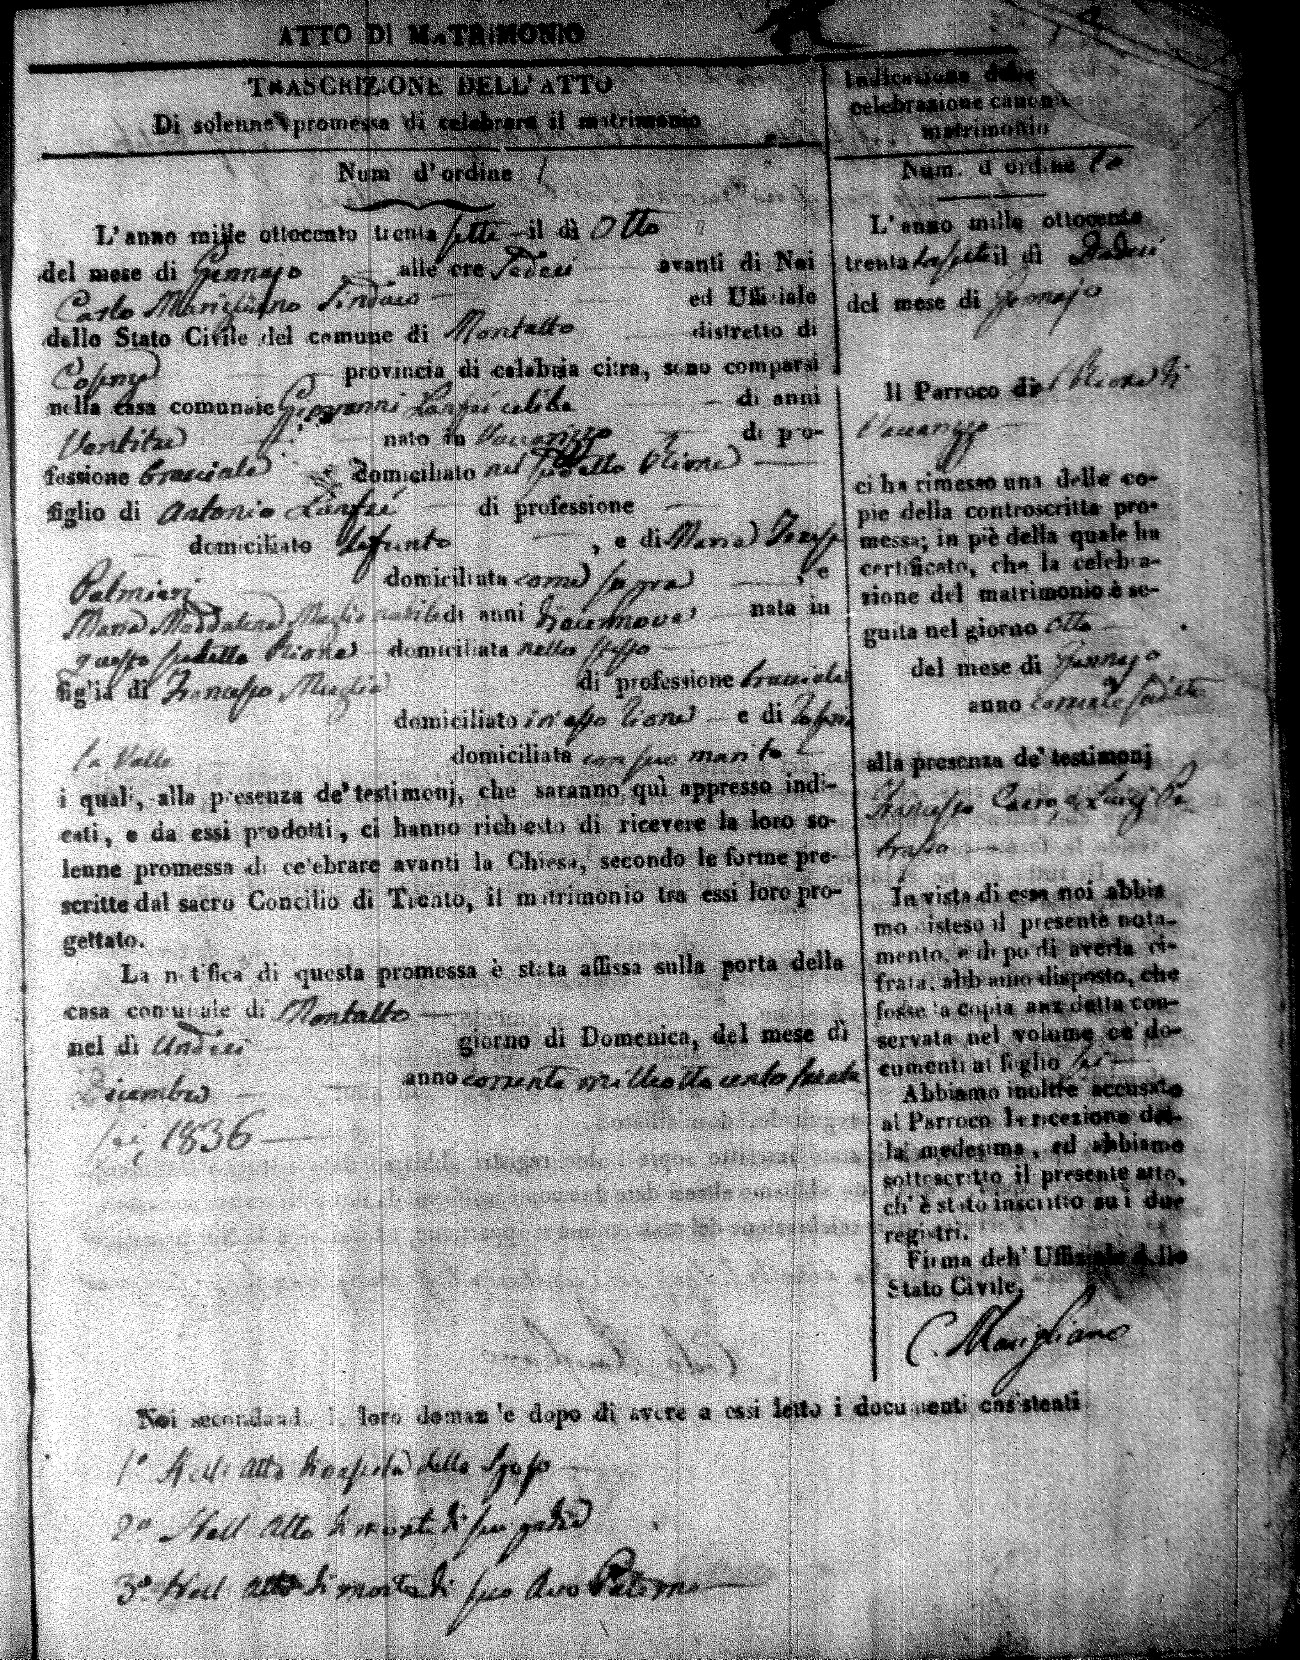 ATTO DI MATRIMONIO
TRASCRIZIONE DELL'ATTO
Di solenne promessa di celebrare il matrimonio
Num d'ordine 1
L'anno mille ottocento trenta sette il dì Otto
del mese di Gennajo alle ore Sedeci avanti di Noi
Carlo Marigliano Sindaco ed Uffiziale
dello Stato Civile del comune di Montalto distretto di
Cosenza provincia di calabria citra, sono comparsi
nella casa comunale Giovanni celibe di anni
Ventitre nato in Vaccarizzo di pro-
fessione bracciale domiciliato nel Rione
figlio di Antonio di professione
domiciliato defunto , e di Maria Teresa
Palmieri domiciliata come sopra , e
Maria Maddalena Maglio nubile di anni Diecinnove nata in
questo sudetto Rione domiciliata nello stesso
figlia di Francesco Maglio di professione bracciale
domiciliato in esso Rione e di
La Valle domiciliata con suo marito
i quali, alla presenza de' testimonj, che saranno quì appresso indi-
cati, e da essi prodotti, ci hanno richiesto di ricevere la loro so-
lenne promessa di celebrare avanti la Chiesa, secondo le forme pre-
scritte dal sacro Concilio di Trento, il matrimonio tra essi loro pro-
gettato.
La notifica di questa promessa è stata affissa sulla porta della
casa comunale di Montalto
nel dì Undeci giorno di Domenica, del mese dì
Dicembre anno corrente mille otto cento trenta
sei, 1836
Noi secondando le loro domande dopo di avere a essi letto i documenti consistenti
1° Nell' atto di nascita dello Sposo
2° Nell' atto di morte di suo padre
3° Nell' atto di morte di suo Avo Paterno
Indicazione della
celebrazione canonica
matrimonio
Num. d'ordine
L'anno mille ottocento
trenta il dì Dodeci
del mese di Gennajo
Il Parroco del Rione di
Vaccarizzo
ci ha rimesso una delle co-
pie della controscritta pro-
messa; in piè della quale ha
certificato, che la celebra-
zione del matrimonio è se-
guita nel giorno otto
del mese di Gennajo
anno corrente
alla presenza de' testimonj
Francesco e Luigi
In vista di essa noi abbia
mo disteso il presente nota-
mento, e dopo di averla ci-
frata, abbiamo disposto, che
fosse la copia anzdetta con-
servata nel volume de' do-
cumenti al foglio sei
Abbiamo inoltre accusato
al Parroco la ricezione del-
la medesima, ed abbiamo
sottoscritto il presente atto,
ch' è stato inscritto su i due
registri.
Firma dell' Uffiziale dello
Stato Civile,
C. Marigliano